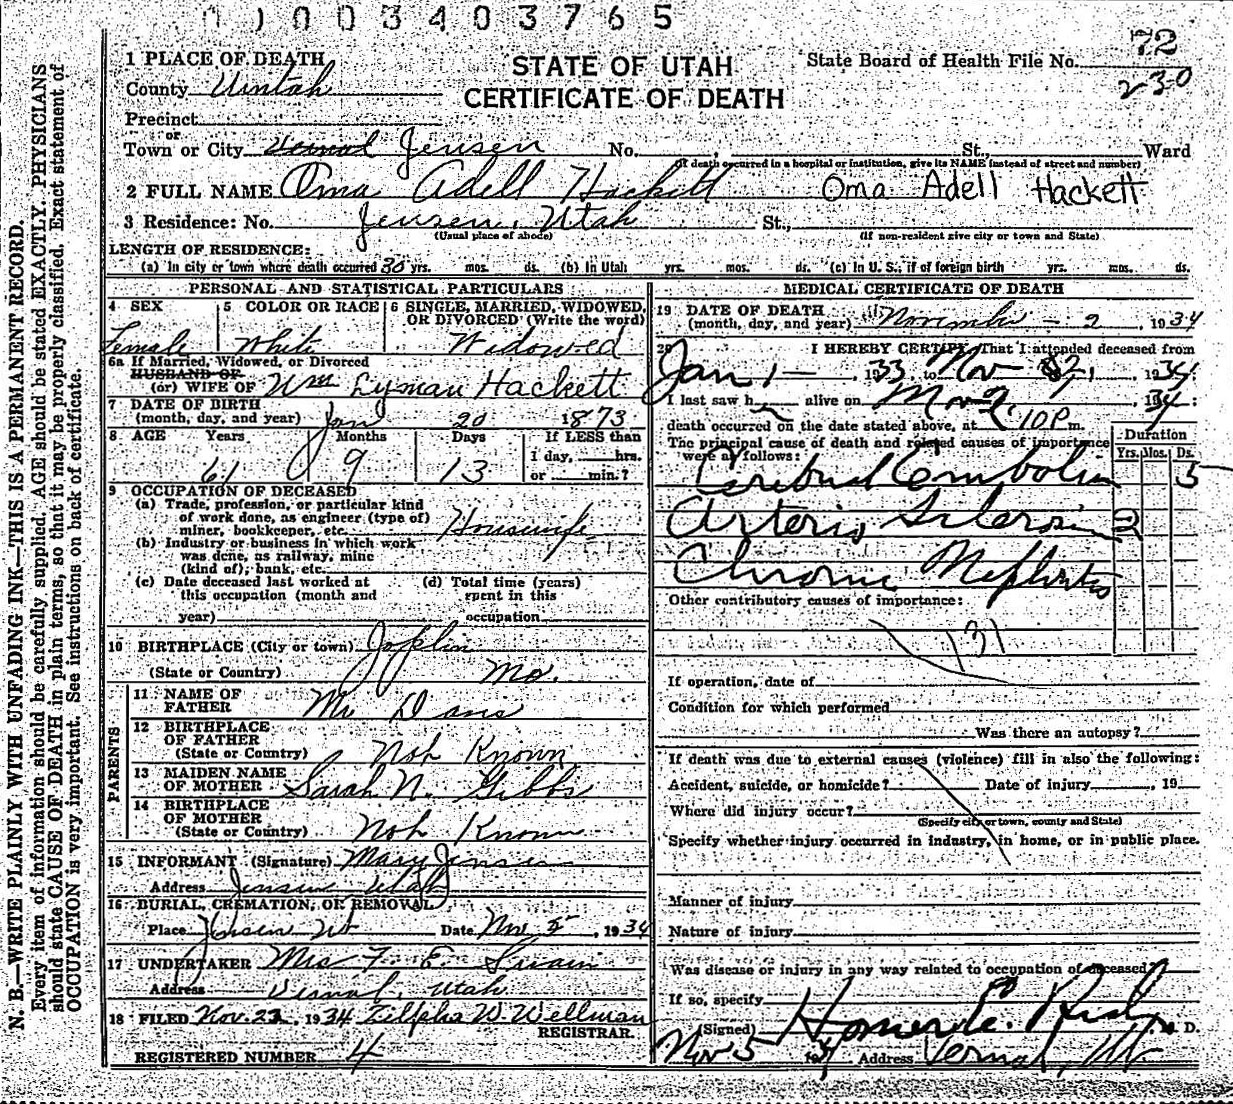 0 0 0 3 4 0 3 7 6 5
N. B.—WRITE PLAINLY WITH UNFADING INK—THIS IS A PERMANENT RECORD.
Every item of information should be carefully supplied. AGE should be stated EXACTLY. PHYSICIANS
should state CAUSE OF DEATH in plain terms, so that it may be properly classified. Exact statement of
OCCUPATION is very important. See instructions on back of certificate.
STATE OF UTAH
CERTIFICATE OF DEATH
State Board of Health File No. 72
230
1 PLACE OF DEATH
County Uintah
Precinct
or
Town or City Vernal Jensen No. , St., Ward
(If death occurred in a hospital or institution, give its NAME instead of street and number)
2 FULL NAME Oma Adell Hackett Oma Adell Hackett
3 Residence: No. Jensen, Utah St.,
(Usual place of abode) (If non-resident give city or town and State)
LENGTH OF RESIDENCE:
(a) In city or town where death occurred 30 yrs. mos. ds. (b) In Utah yrs. mos. ds. (c) In U. S., if of foreign birth yrs. mos. ds.
PERSONAL AND STATISTICAL PARTICULARS
4 SEX Female
5 COLOR OR RACE White
6 SINGLE, MARRIED, WIDOWED, OR DIVORCED (Write the word) Widowed
6a If Married, Widowed, or Divorced
HUSBAND OF
(or) WIFE OF Wm Lyman Hackett
7 DATE OF BIRTH
(month, day, and year) Jan 20 1873
8 AGE Years Months Days If LESS than
61 9 13 1 day, hrs.
or min.?
9 OCCUPATION OF DECEASED
(a) Trade, profession, or particular kind
of work done, as engineer (type of)
miner, bookkeeper, etc. Housewife
(b) Industry or business in which work
was done, as railway, mine
(kind of), bank, etc.
(c) Date deceased last worked at
this occupation (month and
year)
(d) Total time (years)
spent in this
occupation
10 BIRTHPLACE (City or town) Joplin
(State or Country) Mo.
PARENTS
11 NAME OF
FATHER Mr Davis
12 BIRTHPLACE
OF FATHER
(State or Country) Not Known
13 MAIDEN NAME
OF MOTHER Sarah N. Gibbs
14 BIRTHPLACE
OF MOTHER
(State or Country) Not Known
15 INFORMANT (Signature) Mary Jensen
Address Jensen Utah
16 BURIAL, CREMATION, OR REMOVAL
Place Jensen Ut Date Nov 5, 1934
17 UNDERTAKER Mrs F. E. Swain
Address Vernal, Utah
18 FILED Nov. 23, 1934 Zilpha W. Wellman
REGISTRAR.
REGISTERED NUMBER 4
MEDICAL CERTIFICATE OF DEATH
19 DATE OF DEATH
(month, day, and year) November - 2, 1934
20 I HEREBY CERTIFY, That I attended deceased from
Jan 1 —, 1933, to Nov 2, 1934
I last saw h alive on Nov 2, 1934:
death occurred on the date stated above, at 10 P m.
The principal cause of death and related causes of importance
were as follows:
Duration
Yrs. Mos. Ds.
Cerebral Embolism 5
Arterio Sclerosis 2
Chronic Nephritis
Other contributory causes of importance:
131
If operation, date of
Condition for which performed
Was there an autopsy?
If death was due to external causes (violence) fill in also the following:
Accident, suicide, or homicide? Date of injury , 19
Where did injury occur?
(Specify city or town, county and State)
Specify whether injury occurred in industry, in home, or in public place.
Manner of injury
Nature of injury
Was disease or injury in any way related to occupation of deceased?
If so, specify
(Signed) Homer E. Rich M. D.
Nov 5 1934 Address Vernal, Ut